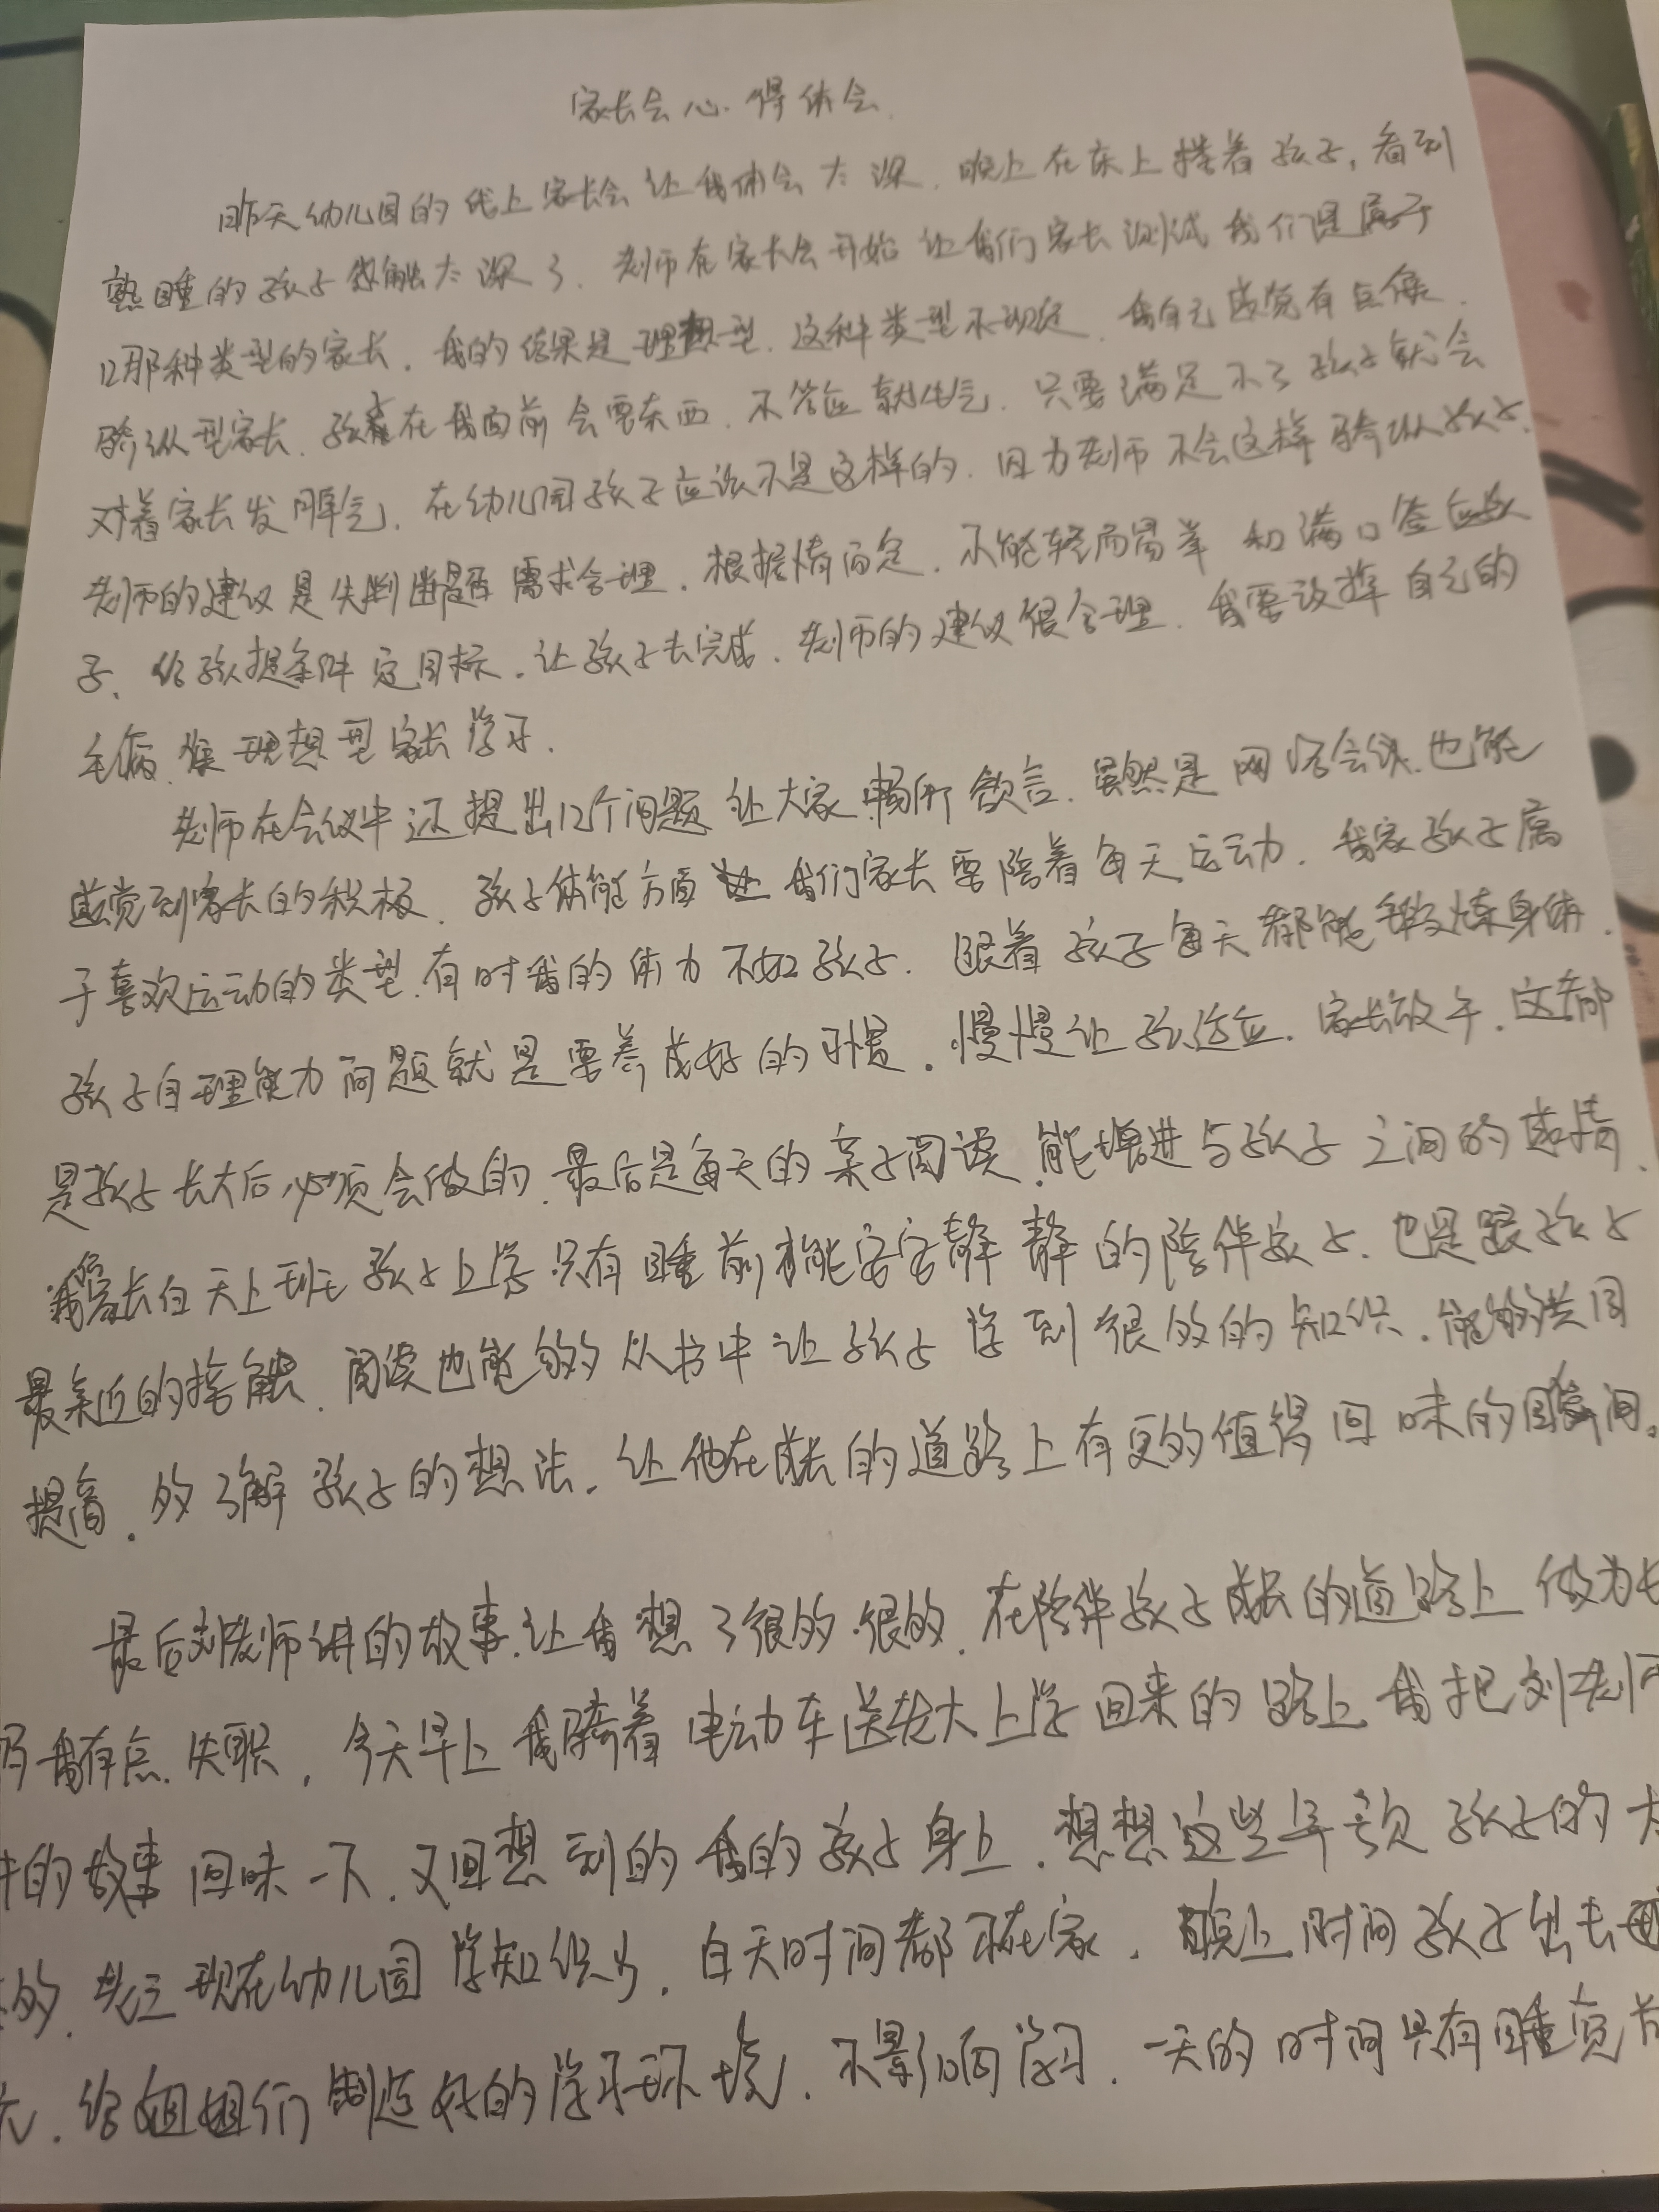 家长会心得体会
昨天幼儿园的线上家长会让我体会太深.晚上在床上搂着孩子,看到
熟睡的孩子感触太深了.老师在家长会开始让我们家长测试我们是属于
那种类型的家长.我的结果是理想型.这种类型不现实.我自己感觉有点像.
骄纵型家长.孩子在我面前会要东西.不答应就生气.只要满足不了孩子就会
对着家长发脾气.在幼儿园孩子应该不是这样的.因为老师不会这样骄纵孩子.
老师的建议是先判断是否需求合理.根据情而定.不能轻而易举和满口答应孩
子.给孩提条件定目标.让孩子去完成.老师的建议很合理.我要改掉自己的
毛病.像理想型家长学习.
老师在会议中还提出12个问题让大家畅所欲言.虽然是网络会议.也能
感觉到家长的积极.孩子体能方面让我们家长要陪着每天运动.我家孩子属
于喜欢运动的类型.有时我的体力不如孩子.跟着孩子每天都能锻炼身体.
孩子自理能力问题就是要养成好的习惯.慢慢让孩适应.家长放手.这都
是孩子长大后必须会做的.最后是每天的亲子阅读.能增进与孩子之间的感情.
家长白天上班孩子上学.只有睡前才能安安静静的陪伴孩子.也是跟孩子
最亲近的接触.阅读也能够从书中让孩子学到很多的知识.能够共同
提高.多了解孩子的想法.让他在成长的道路上有更多值得回味的瞬间。
最后刘老师讲的故事.让我想了很多.很多.在陪伴孩子成长的道路上做为
我有点失职.今天早上我骑着电动车送老大上学回来的路上我把刘老师
的故事回味一下.又回想到的我的孩子身上.想想这些年亏欠孩子的太
多.老三现在幼儿园学知识少.白天时间都不在家.晚上时间孩子出去
.给姐姐们制造好的学习环境.不影响学习.一天的时间只有睡觉前